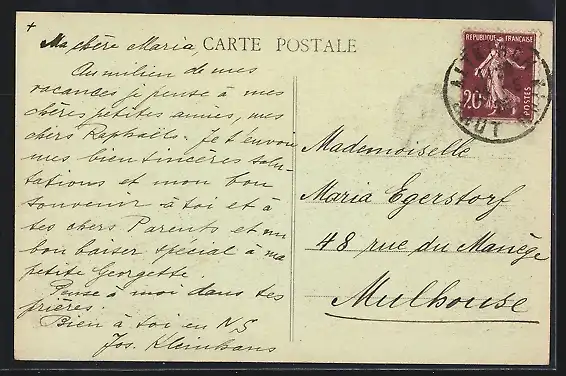 +
Ma chère Maria,
CARTE POSTALE
Au milien de mes
vacances je pense à mes
chères petites amies, mes
chers Raphaëls. Je t'envoie
mes bien sincères salu-
tations et mon bon
souvenir à toi et à
tes chers Parents et un
bon baiser spécial à ma
petite Georgette.
Pense à moi dans tes
prières.
Bien à toi en N,S
Jos. Kleinhans
REPUBLIQUE FRANÇAISE
20c
POSTES
Mademoiselle
Maria Egerstorf
48 rue du Manège
Mulhouse